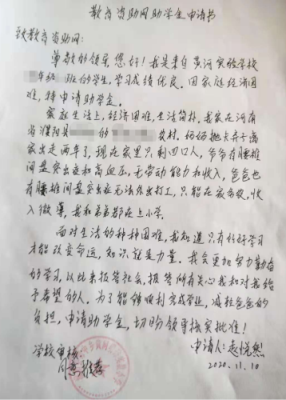 教育资助网助学生申请书
致教育资助网:
尊敬的领导您好!我是来自黄河实验学校
年级 班的学生,学习成绩优良。因家庭经济困
难,特申请助学金。
家庭生活上,经济困难,生活简朴,我家在河南
省濮阳县 的 村。妈妈抛夫弃子离
家出走两年了,现在家里只剩四口人,爷爷有腰椎
间盘突出症和高血压,无劳动能力和收入,爸爸也
有腰椎间盘突出症无法外出打工,只能在家务农,收
入微薄,我和弟弟都在上小学。
面对生活的种种困难,我知道只有好好学习
才能改变命运,知识就是力量。我会更加努力勤奋
的学习,以此来报答社会,报答所有关心我和对我给
予希望的人。为了能够顺利完成学业,减轻爸爸的
负担,申请助学金,切盼领导核实批准!
学校审核 申请人:袁悦熙
同意推荐 2020.11.10